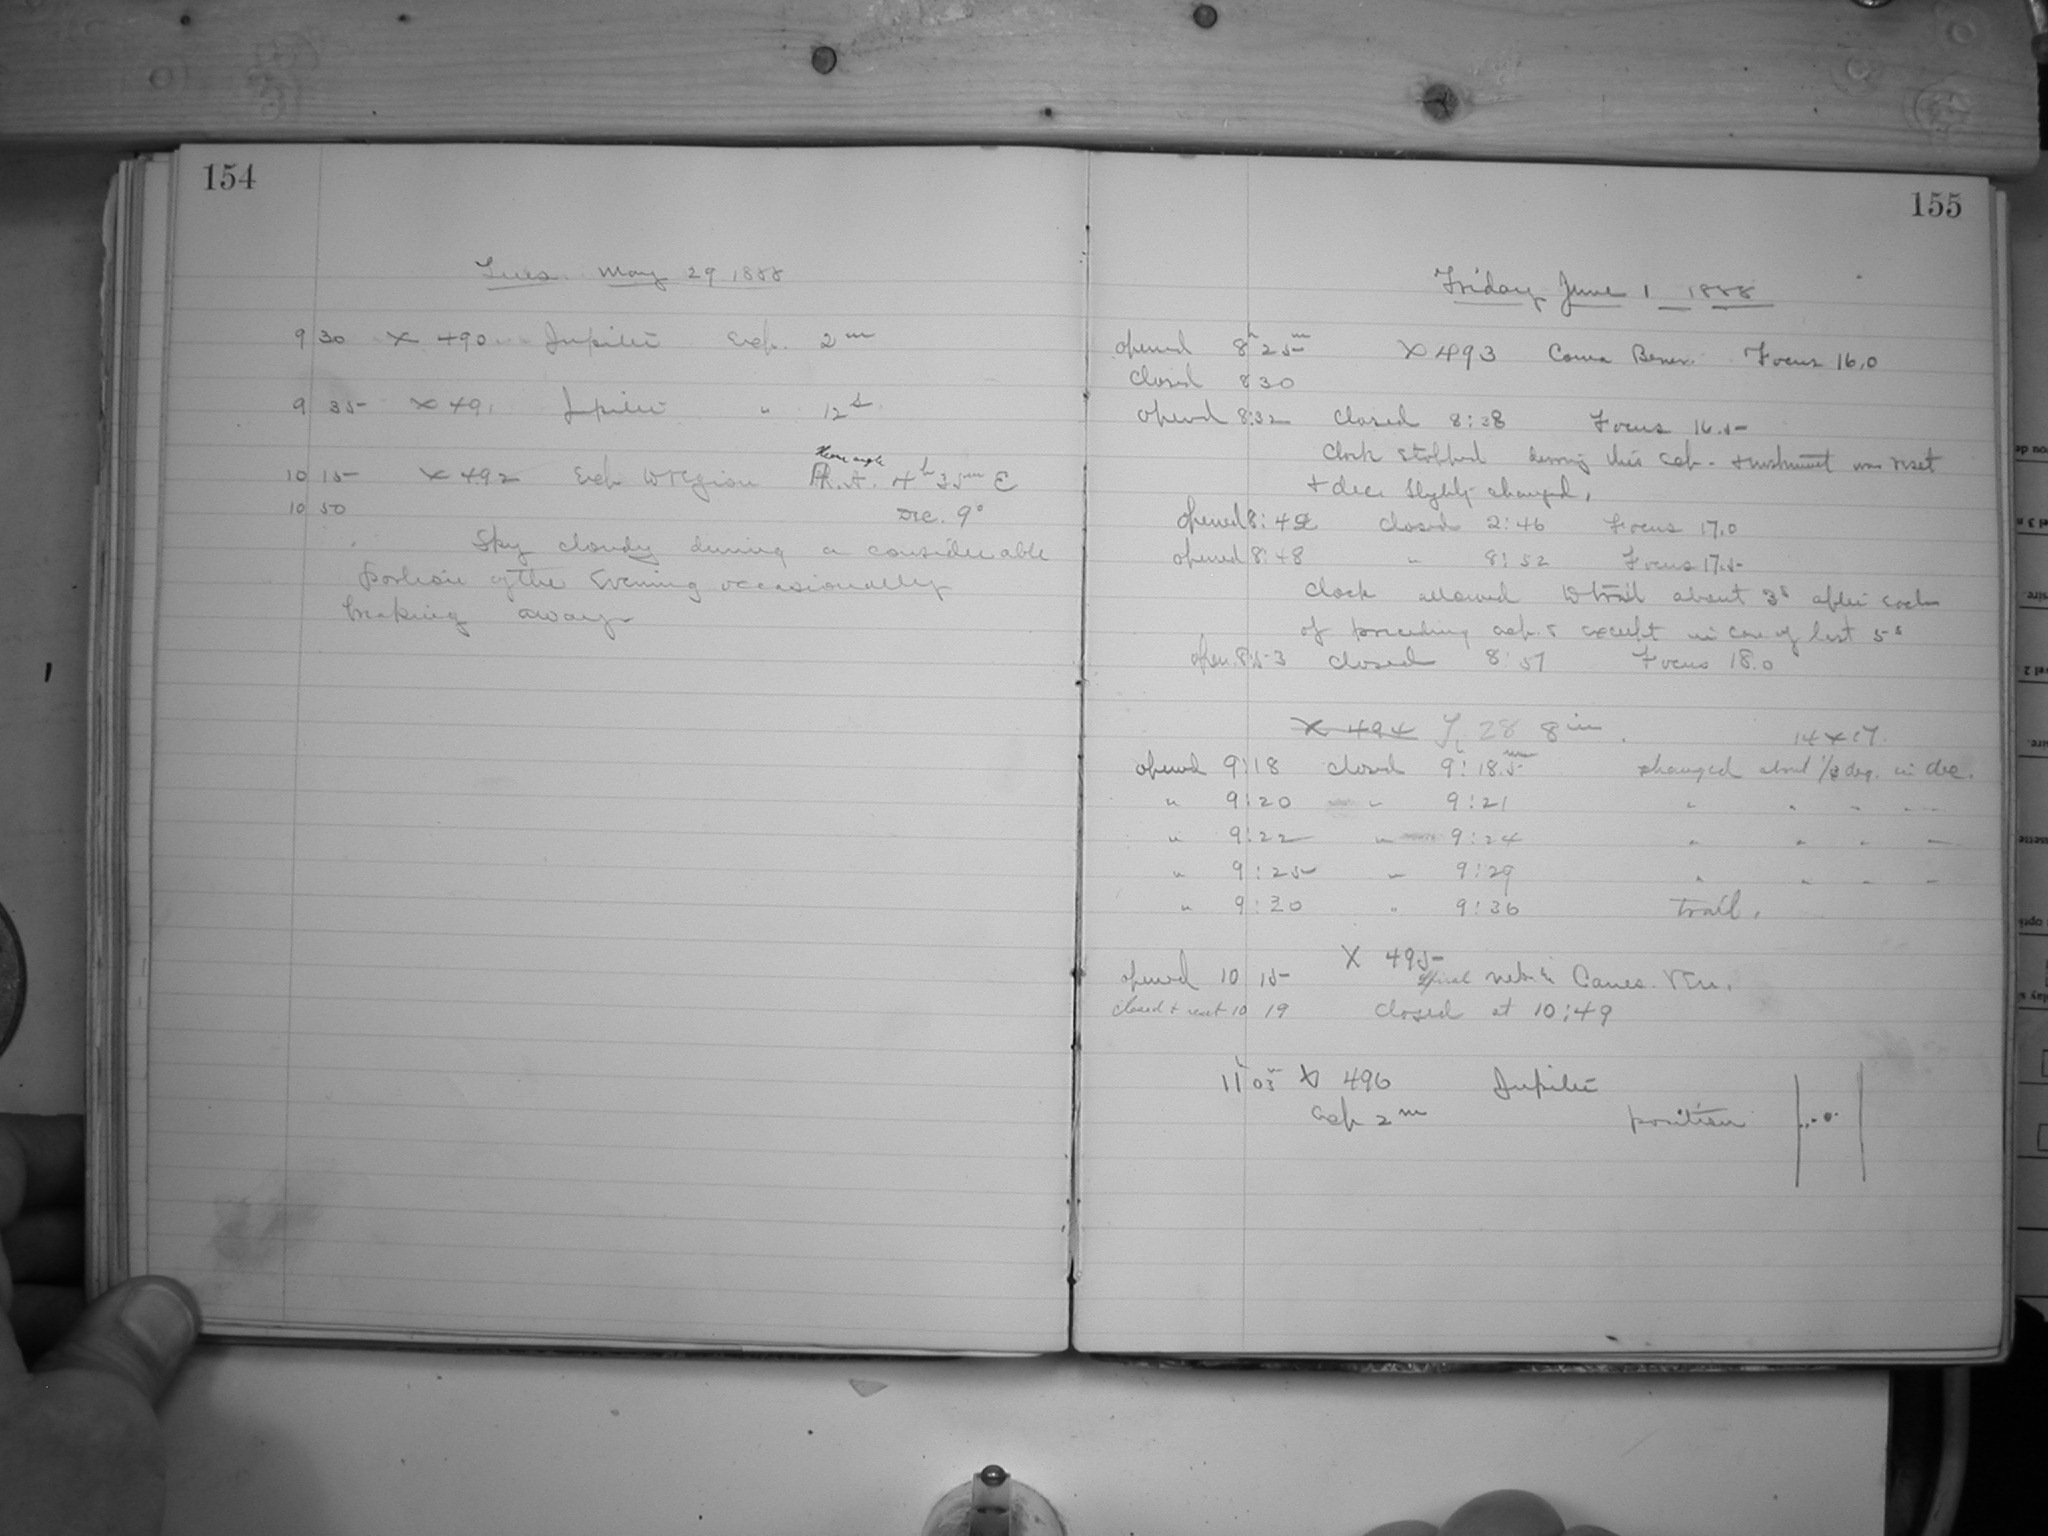 154
Tues. May 29 1888
9 30 X 490 Jupiter Exp. 2m
9 35 X 491 Jupiter " 12s
Hour angle
10 15 X 492 Exp. to region R.A. 4h 35m E
10 50 Dec. 9°
Sky cloudy during a considerable
portion of the Evening occasionally
breaking away
155
Friday June 1 1888
opened 8h 25m X 493 Coma Beren. Focus 16.0
closed 8 30
opened 8:32 closed 8:38 Focus 16.5
Clock stopped during this exp. + instrument was reset
+ dec. slightly changed.
opened 8:42 closed 2:46 Focus 17.0
opened 8:48 " 8:52 Focus 17.5
Clock allowed to trail about 3s after each
of preceding exp.s except in case of last 5s
open. 8:53 closed 8:57 Focus 18.0
X 494 28 8 in. 14 x 17
opened 9:18 closed 9:18.5m changed about 1/2 deg. in dec.
" 9:20 " 9:21 " " " "
" 9:22 " 9:24 " " " "
" 9:25 " 9:29 " " " "
" 9:30 " 9:36 trail.
X 495
opened 10 15 Spiral neb. in Canes. Ven.
closed + reset 10 19 closed at 10:49
11h 03m X 496 Jupiter
exp 2m position